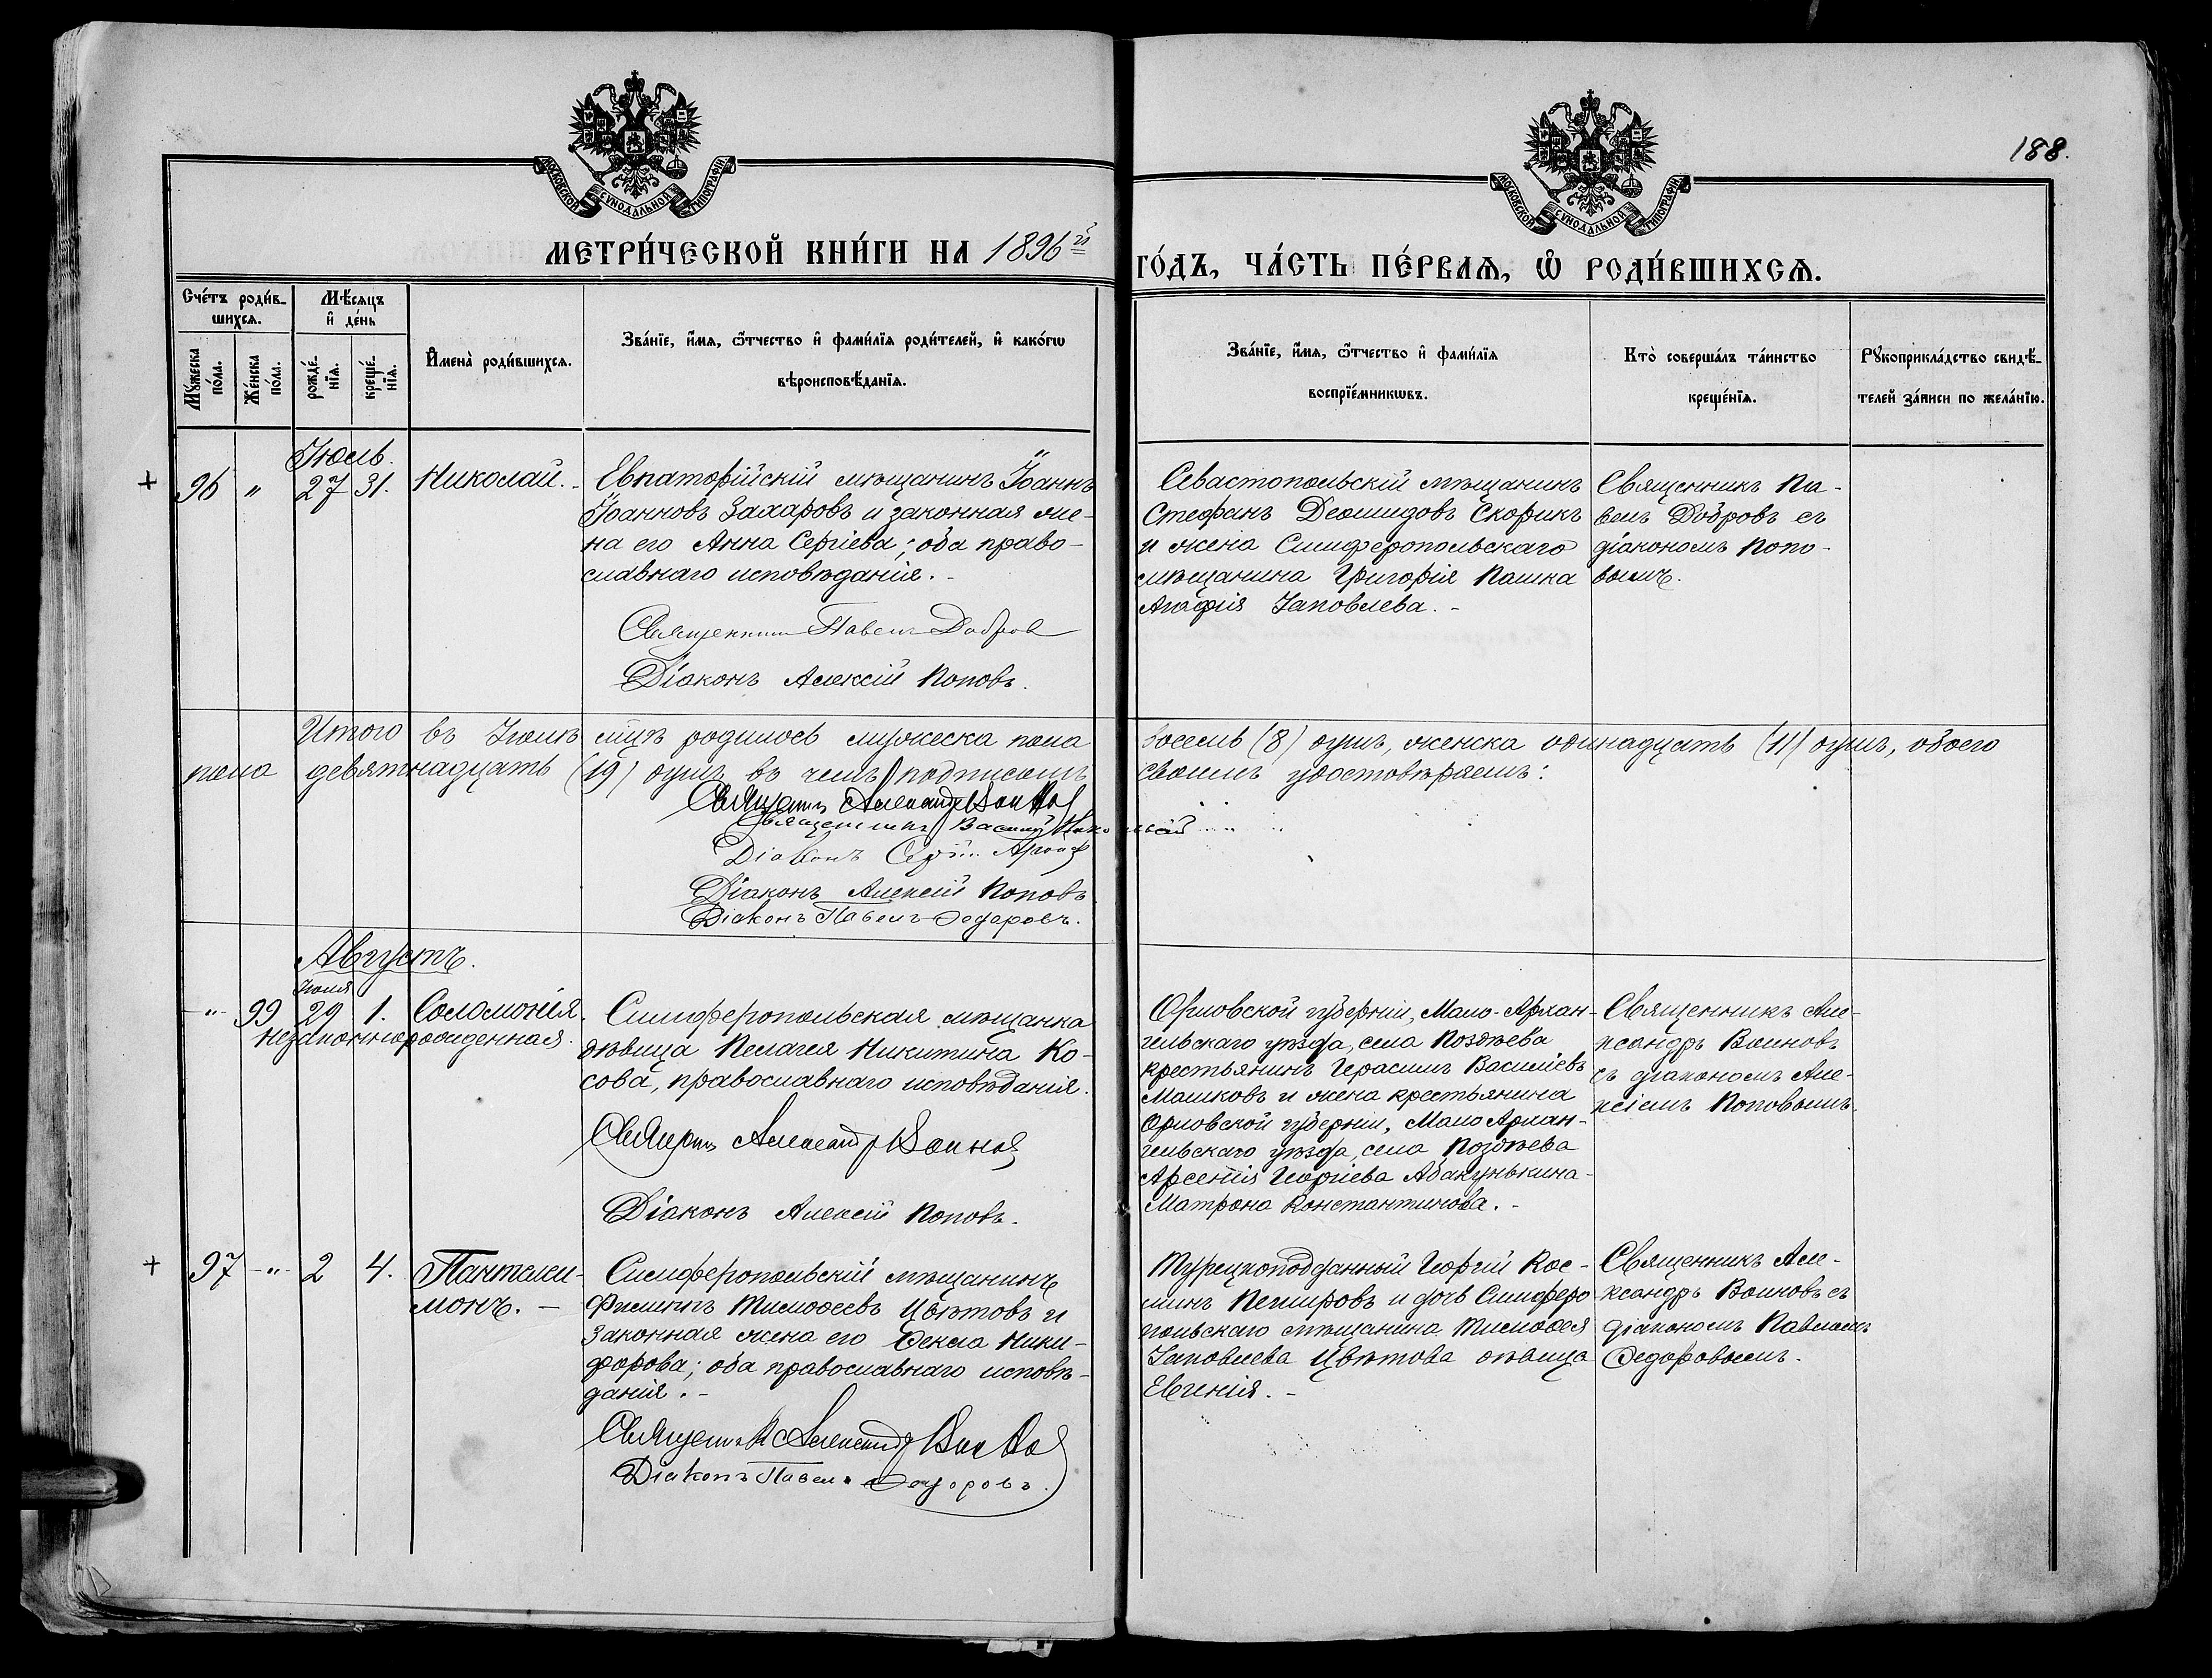 188.
МОСКОВСКОЙ СѴНОДАЛЬНОЙ ТИПОГРАФІИ
МОСКОВСКОЙ СѴНОДАЛЬНОЙ ТИПОГРАФІИ
МЕТРИ́ЧЕСКОЙ КНИ́ГИ НА 1896й
ГО́ДЪ, ЧА́СТЬ ПЕ́РВАѦ, Ѡ҆ РОДИ́ВШИХСѦ.
Сче́тъ роди́в-
шихсѧ.
Мꙋ́жеска по́ла.
Же́нска по́ла.
Мѣ́сѧцъ
и҆ де́нь
рожде́-
нїѧ.
креще́-
нїѧ.
И҆мена̀ роди́вшихсѧ.
Зва́нїе, и҆́мѧ, ѻ҆́тчество и҆ фами́лїѧ роди́телей, и҆ како́гѡ
вѣроисповѣ́данїѧ.
Зва́нїе, и҆́мѧ, ѻ҆́тчество и҆ фами́лїѧ
воспрїе́мникѡвъ.
Кто̀ соверша́лъ та́инство
креще́нїѧ.
Рꙋкоприкла́дство свидѣ́-
телей за́писи по жела́нїю.
Іюль.
+ 96 " 27 31. Николай. -
Евпаторійскій мѣщанинъ Іоаннъ
Іоанновъ Захаровъ и законная же-
на его Анна Сергіева; оба право-
славнаго исповѣданія. -
Священникъ Павелъ Добровъ
Діаконъ Алексій Поповъ.
Севастопольскій мѣщанинъ
Стефанъ Деомидовъ Скорикъ
и жена Симферопольскаго
мѣщанина Григорія Пашка
Агафія Іаковлева. -
Священникъ Па-
велъ Добровъ съ
діакономъ Попо-
вымъ.
Итого въ Іюлѣ мцѣ родилось мужеска пола восемь (8) душъ, женска одинадцать (11) душъ, обоего
пола девятнадцать (19) душъ въ чемъ подписомъ своимъ удостовѣряемъ:
Священникъ Александръ Воиновъ
Священникъ Василій
Діаконъ Сергій
Діаконъ Алексій Поповъ
Діаконъ Павелъ Ѳедоровъ.
Августъ.
Іюля
-"- 99 29 1. Соломонія.
незаконнорожденная.
Симферопольская мѣщанка
дѣвица Пелагея Никитина Ко-
сова, православнаго исповѣданія.
Священникъ Александръ Воиновъ
Діаконъ Алексій Поповъ.
Орловской губерніи, Мало-Архан-
гельскаго уѣзда, села Поздѣева
крестьянинъ Герасимъ Василіевъ
Машковъ и жена крестьянина
Орловской губерніи, Мало Архан-
гельскаго уѣзда, села Поздѣева
Арсенія Георгіева Абакунькина-
Матрона Константинова. -
Священникъ Але-
ксандръ Воиновъ
съ діакономъ Але-
ксіемъ Поповымъ.
+ 97 -"- 2 4. Пантелеи-
монъ. -
Симферопольскій мѣщанинъ
Филиппъ Тимоѳеевъ Цвѣтовъ и
законная жена его Ѳекла Ники-
форова; оба православнаго исповѣ-
данія. -
Священникъ Александръ Воиновъ
Діаконъ Павелъ Ѳедоровъ.
Турецкоподданный Георгій Кос-
минъ Пемпровъ и дочь Симферо
польскаго мѣщанина Тимоѳея
Іаковлева Цвѣтова дѣвица
Евгенія. -
Священникъ Але-
ксандръ Воиновъ съ
діакономъ Павломъ
Ѳедоровымъ.